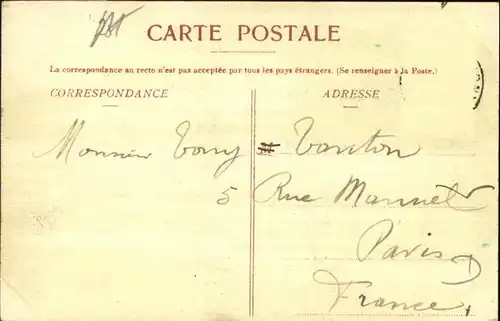 CARTE POSTALE
La correspondance au recto n'est pas acceptée par tous les pays étrangers. (Se renseigner à la Poste.)
CORRESPONDANCE
ADRESSE
Monsieur Tony
5 Rue
Paris
France,